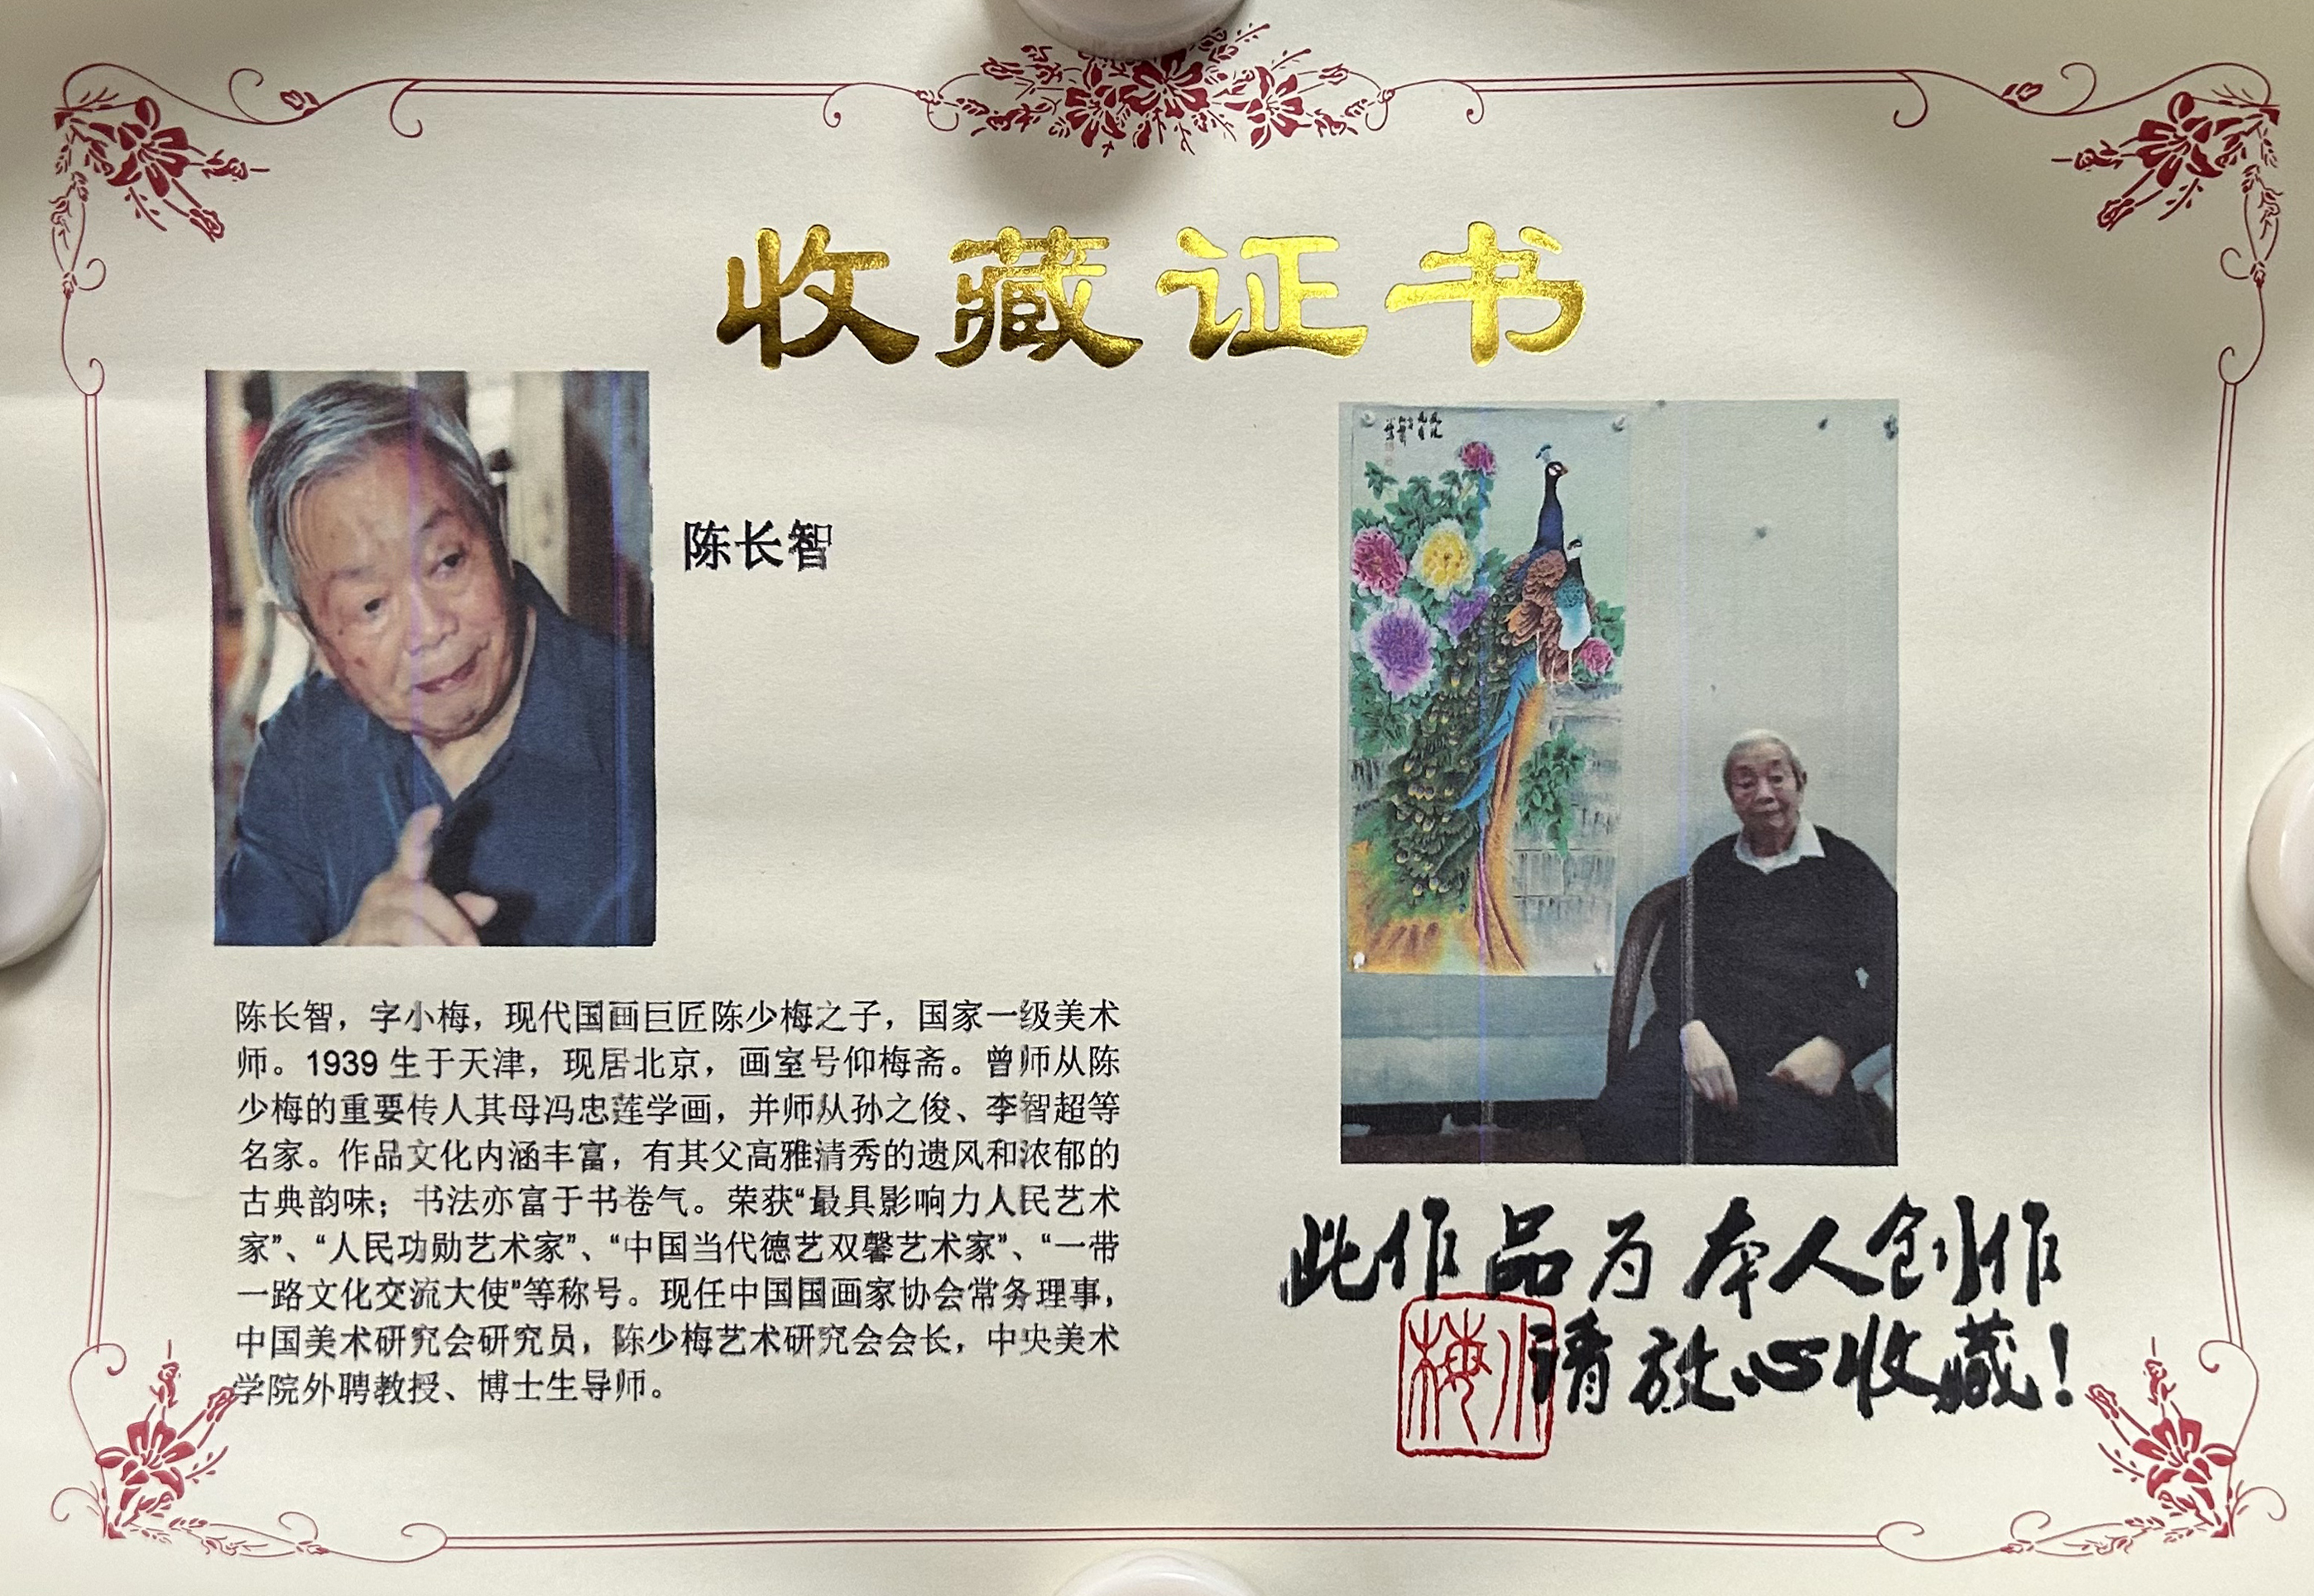 收藏证书
陈长智
陈长智，字小梅，现代国画巨匠陈少梅之子，国家一级美术
师。1939 生于天津，现居北京，画室号仰梅斋。曾师从陈
少梅的重要传人其母冯忠莲学画，并师从孙之俊、李智超等
名家。作品文化内涵丰富，有其父高雅清秀的遗风和浓郁的
古典韵味；书法亦富于书卷气。荣获“最具影响力人民艺术
家”、“人民功勋艺术家”、“中国当代德艺双馨艺术家”、“一带
一路文化交流大使”等称号。现任中国国画家协会常务理事，
中国美术研究会研究员，陈少梅艺术研究会会长，中央美术
学院外聘教授、博士生导师。
此作品为本人创作
请放心收藏！
小梅